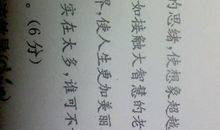 的思绪,使想象超越
如接触大智慧的老
界,使人生更加美丽
实在太多,谁可不
。(6分)